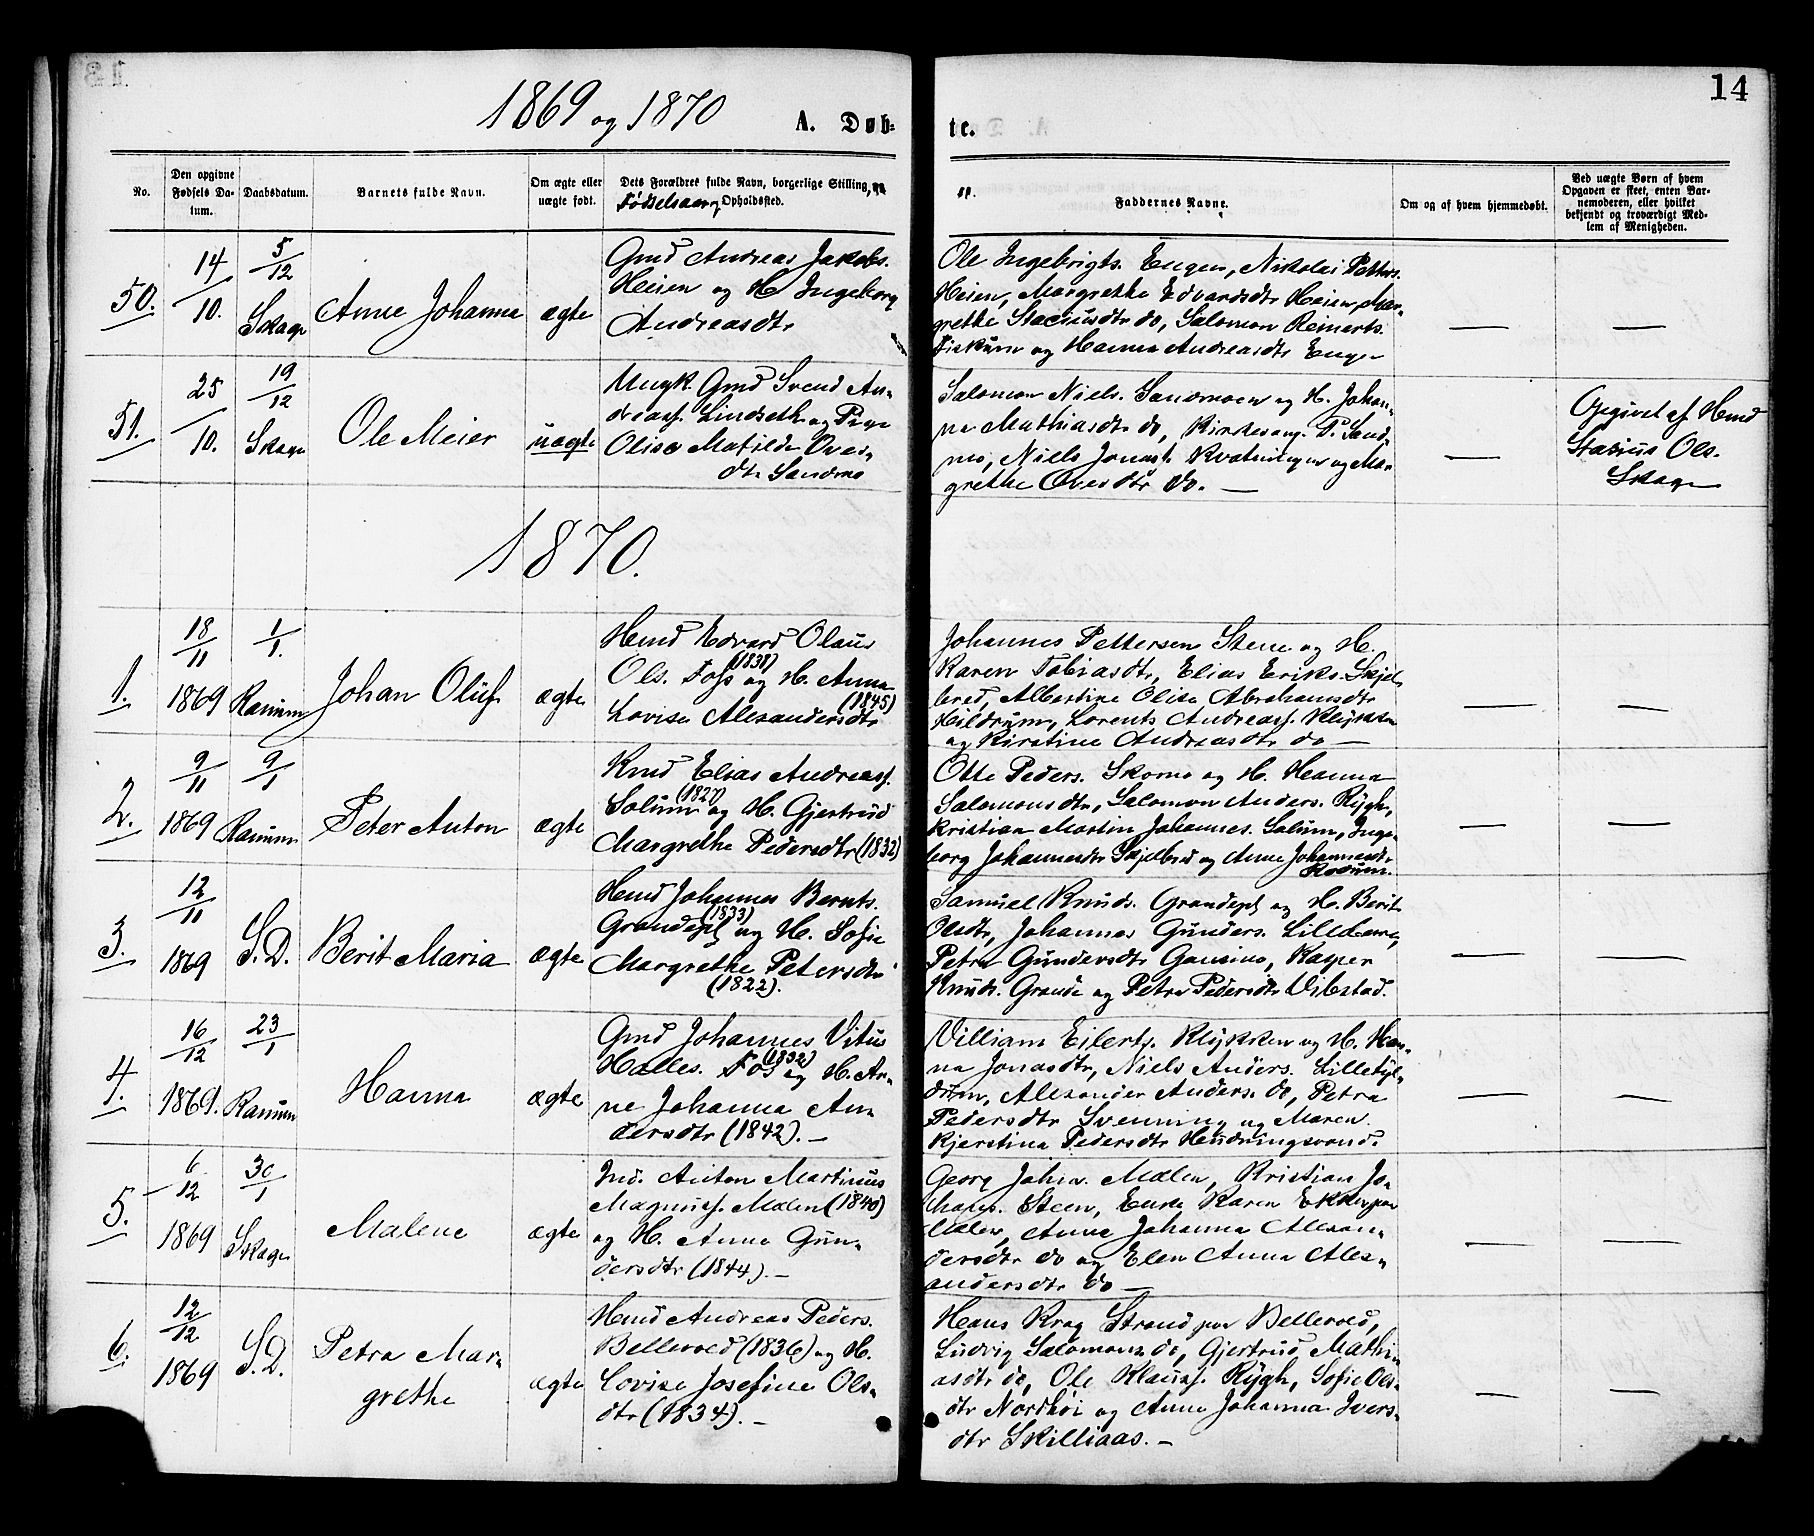 14
1869 og 1870
A. Døb-
te.
No.
Den opgivne
Fødsels Da-
tum.
Daabsdatum.
Barnets fulde Navn.
Om ægte eller
uægte født.
Dets Forældres fulde Navn, borgerlige Stilling, og
Fødselsaar Opholdssted.
Faddernes Navne.
Om og af hvem hjemmedøbt.
Ved uægte Børn af hvem
Opgaven er skeet, enten Bar-
nemoderen, eller hvilket
bekjendt og troværdigt Med-
lem af Menigheden.
50.
14/10.
5/12
Skage
Anne Johanna
ægte
Gmd Andreas Jakobs.
Heien og H. Ingeborg
Andreasdtr
Ole Ingebrigts. Engen, Nikolai Petters.
Heien, Margrethe Edvardsdtr Heien, Mar-
grethe Staciusdtr do, Salomon Reinerts.
Fiskum og Hanna Andreasdtr Engen
—
—
51.
25/10.
19/12
Skage
Ole Meier
uægte
Ungk. Gmd Svend An-
dreass. Lindseth og Pige
Olise Matilde Oves-
dtr Sandmo
Salomon Niels. Sandmoen og H. Johan-
ne Mathiasdtr do, Kirkesang. P. Sand-
mo, Niels Jonas. Kvatningen og Mar
grethe Ovesdtr do. —
—
Opgivet af Hmd
Stasius Ols.
Skage
1870.
1.
18/11
1869
1/1.
Ranum
Johan Oluf
ægte
Hmd Edvard Olaus
Ols. Foss (1838) og H. Anna
Lovise Alexandersdtr (1845)
Johannes Pettersen Stene og H.
Karen Tobiasdtr, Elias Eriks. Skjel-
bred, Albertine Olise Abrahamsdtr
Hildrum, Lorents Andreass. Klykken
og Kirstine Andreasdtr do —
—
—
2.
9/11
1869
9/1
Ranum
Peter Anton
ægte
Kmd Elias Andreass.
Solum (1827) og H. Gjertrud
Margrethe Pedersdtr (1832)
Otte Peders. Skomo og H. Hanna
Salomonsdtr, Salomon Anders. Rygh,
Kristian Martin Johannes. Solum, Inge-
borg Johannesdtr Skjelbred og Anne Johannesdtr
—
—
3.
12/11
1869
S. D.
Berit Maria
ægte
Hmd Johannes Bernts.
Grandepl (1833) og H. Sofie
Margrethe Petersdtr
(1822).
Samuel Knuds. Grandepl og H. Berit
Olsdtr, Johannes Gunders.
Petra Gundersdtr Gansmo, Kasper
Knuds. Grande og Petra Pedersdtr Vibstad.
—
—
4.
16/12
1869.
23/1
Ranum
Hanna
ægte
Gmd Johannes Vitus
Halles. Fos (1832) og H. An-
ne Johanna An
dersdtr (1842). —
Villiam Eilerts. Klykken og H. Han-
na Jonasdtr, Niels Anders. Lillehyl-
drum, Alexander Anders. do, Petra
Pedersdtr Svenning og Maren
Kjerstina Pedersdtr
—
—
5.
6/12
1869
30/1
Skage
Malene
ægte
Ind. Anton Martinus
Magnuss. Mælen (1840)
og H. Anne Gun-
dersdtr (1844). —
Georg Johns. Mælen, Kristian Jo-
hans. Steen, Enke Karen
Mælen, Anne Johanna Alexan-
dersdtr do og Elen Anna Alex-
andersdtr do —
—
—
6.
12/12
1869
S. D.
Petra Mar-
grethe
ægte
Hmd Andreas Peders.
Bellevold (1836) og H.
Lovise Josefine Ols-
dtr (1834). —
Hans Krog Strand paa Bellevold,
Ludvig Salomons. do, Gjertrud Mathi-
asdtr do, Ole Klauss. Rygh, Sofie Ols-
dtr Nordhøi og Anne Johanna Ivers-
dtr Skilliaas. —
—
—